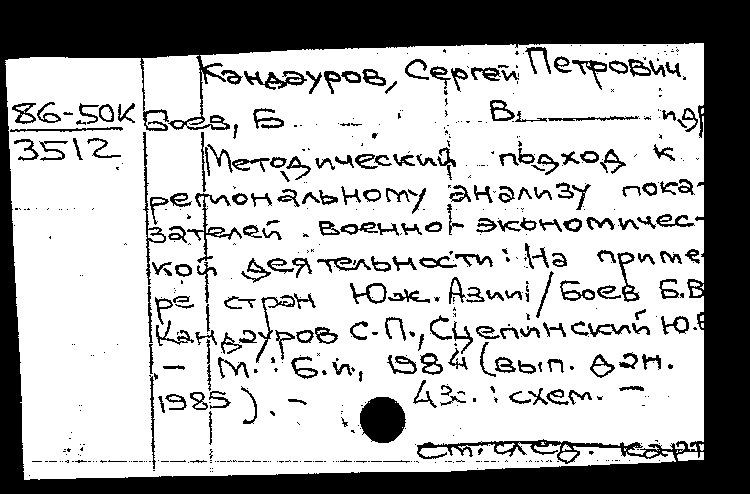 Кандауров, Сергей Петрович.
86-50К
3512
Боев, Б. В. и др
Методический подход к
региональному анализу пока-
зателей военно-экономичес-
кой деятельности: На приме-
ре стран Юж. Азии / Боев Б.В
Кандауров С.П., Сцепинский Ю.Е
.- М.: Б.и, 1984 (вып. дан.
1985). - 43с. : схем. -
см. след. карт